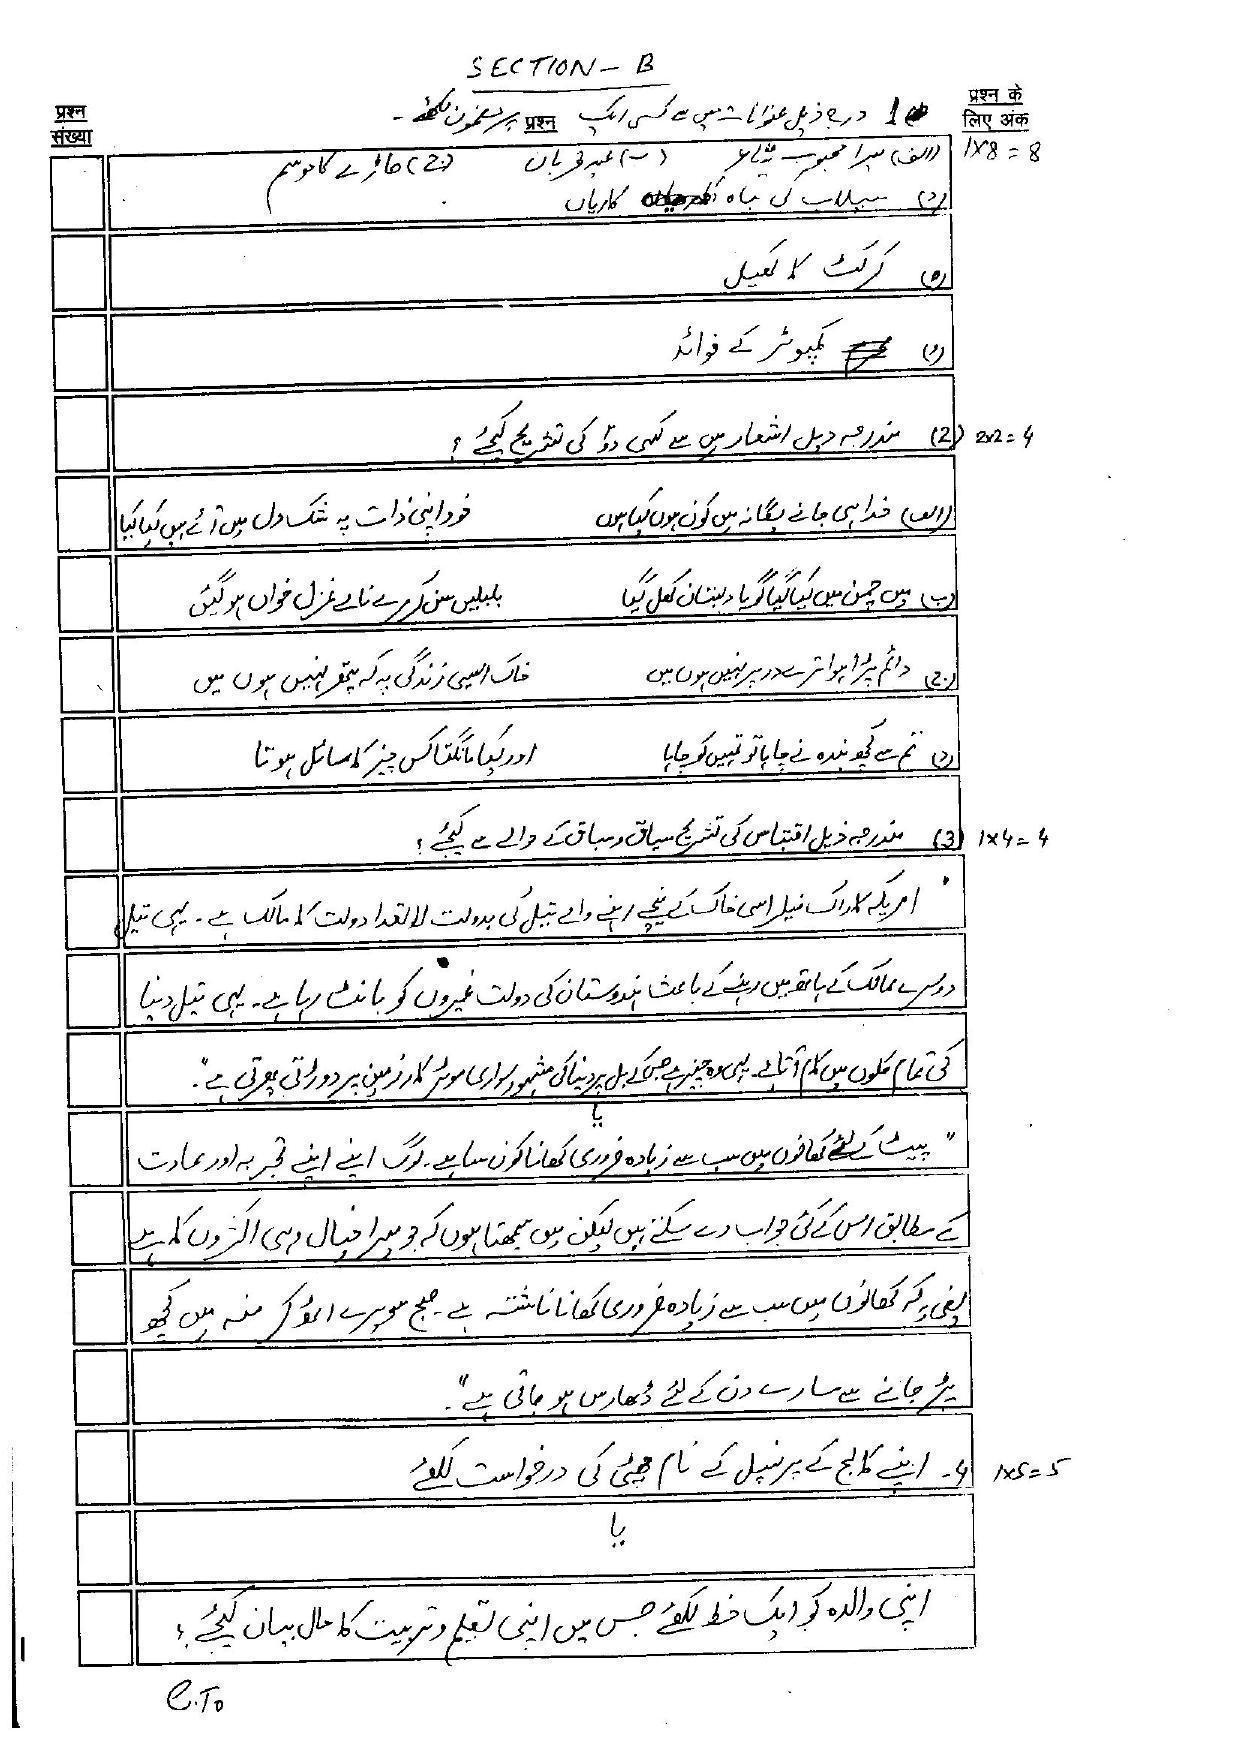 SECTION - B
प्रश्न संख्या
प्रश्न के लिए अंक
1 درج ذیل عنوانات میں سے کسی ایک प्रश्न پر مضمون لکھئے۔
1x8 = 8
(الف) میرا محبوب شاعر (ب) عید قرباں (ج) جاڑے کا موسم
(د) سیلاب کی تباہ کاریاں
(ہ) کرکٹ کا کھیل
(و) کمپیوٹر کے فوائد
(2) مندرجہ ذیل اشعار میں سے کسی دو کی تشریح کیجئے؟ 2x2=4
(الف) خدا ہی جانے یگانہ میں کون ہوں کیا ہوں خود اپنی ذات پہ شک دل میں آئے ہیں کیا کیا
(ب) میں چمن میں کیا گیا گویا دبستان کھل گیا بلبلیں سن کر مرے نالے غزل خواں ہو گئیں
(ج) دائم پڑا ہوا ترے در پر نہیں ہوں میں خاک ایسی زندگی پہ کہ پتھر نہیں ہوں میں
(د) تم سے کچھ بندہ نے چاہا تو تمہیں کو چاہا اور کیا مانگتا کس چیز کا سائل ہوتا
(3) مندرجہ ذیل اقتباس کی تشریح سیاق و سباق کے حوالے سے کیجئے؟ 1x4=4
امریکہ کا راک فیلر اسی خاک کے نیچے رہنے والے تیل کی بدولت لا تعداد دولت کا مالک ہے۔ یہی تیل
دوسرے ممالک کے ہاتھ میں رہنے کے باعث ہندوستان کی دولت غیروں کو بانٹ رہا ہے۔ یہی تیل دنیا
کی تمام ملکوں میں کام آتا ہے یہی وہ چیز ہے جس کے بل پر دنیا کی مشہور سواری موٹر کار زمین پر دوڑتی پھرتی ہے"۔
یا
"پیٹ کے لئے کھانوں میں سب سے زیادہ ضروری کھانا کون سا ہے۔ لوگ اپنے اپنے تجربہ اور عادت
کے مطابق اس کے کئی جواب دے سکتے ہیں لیکن میں سمجھتا ہوں کہ جو میرا خیال وہی اکثروں کا ہے
یعنی یہ کہ کھانوں میں سب سے زیادہ ضروری کھانا ناشتہ ہے۔ صبح سویرے اٹھ کر منہ میں کچھ
پڑ جانے سے سارے دن کے لئے ڈھارس ہو جاتی ہے"۔
4۔ اپنے کالج کے پرنسپل کے نام چھٹی کی درخواست لکھئے 1x5=5
یا
اپنی والدہ کو ایک خط لکھئے جس میں اپنی تعلیم و تربیت کا حال بیان کیجئے؟
P.To